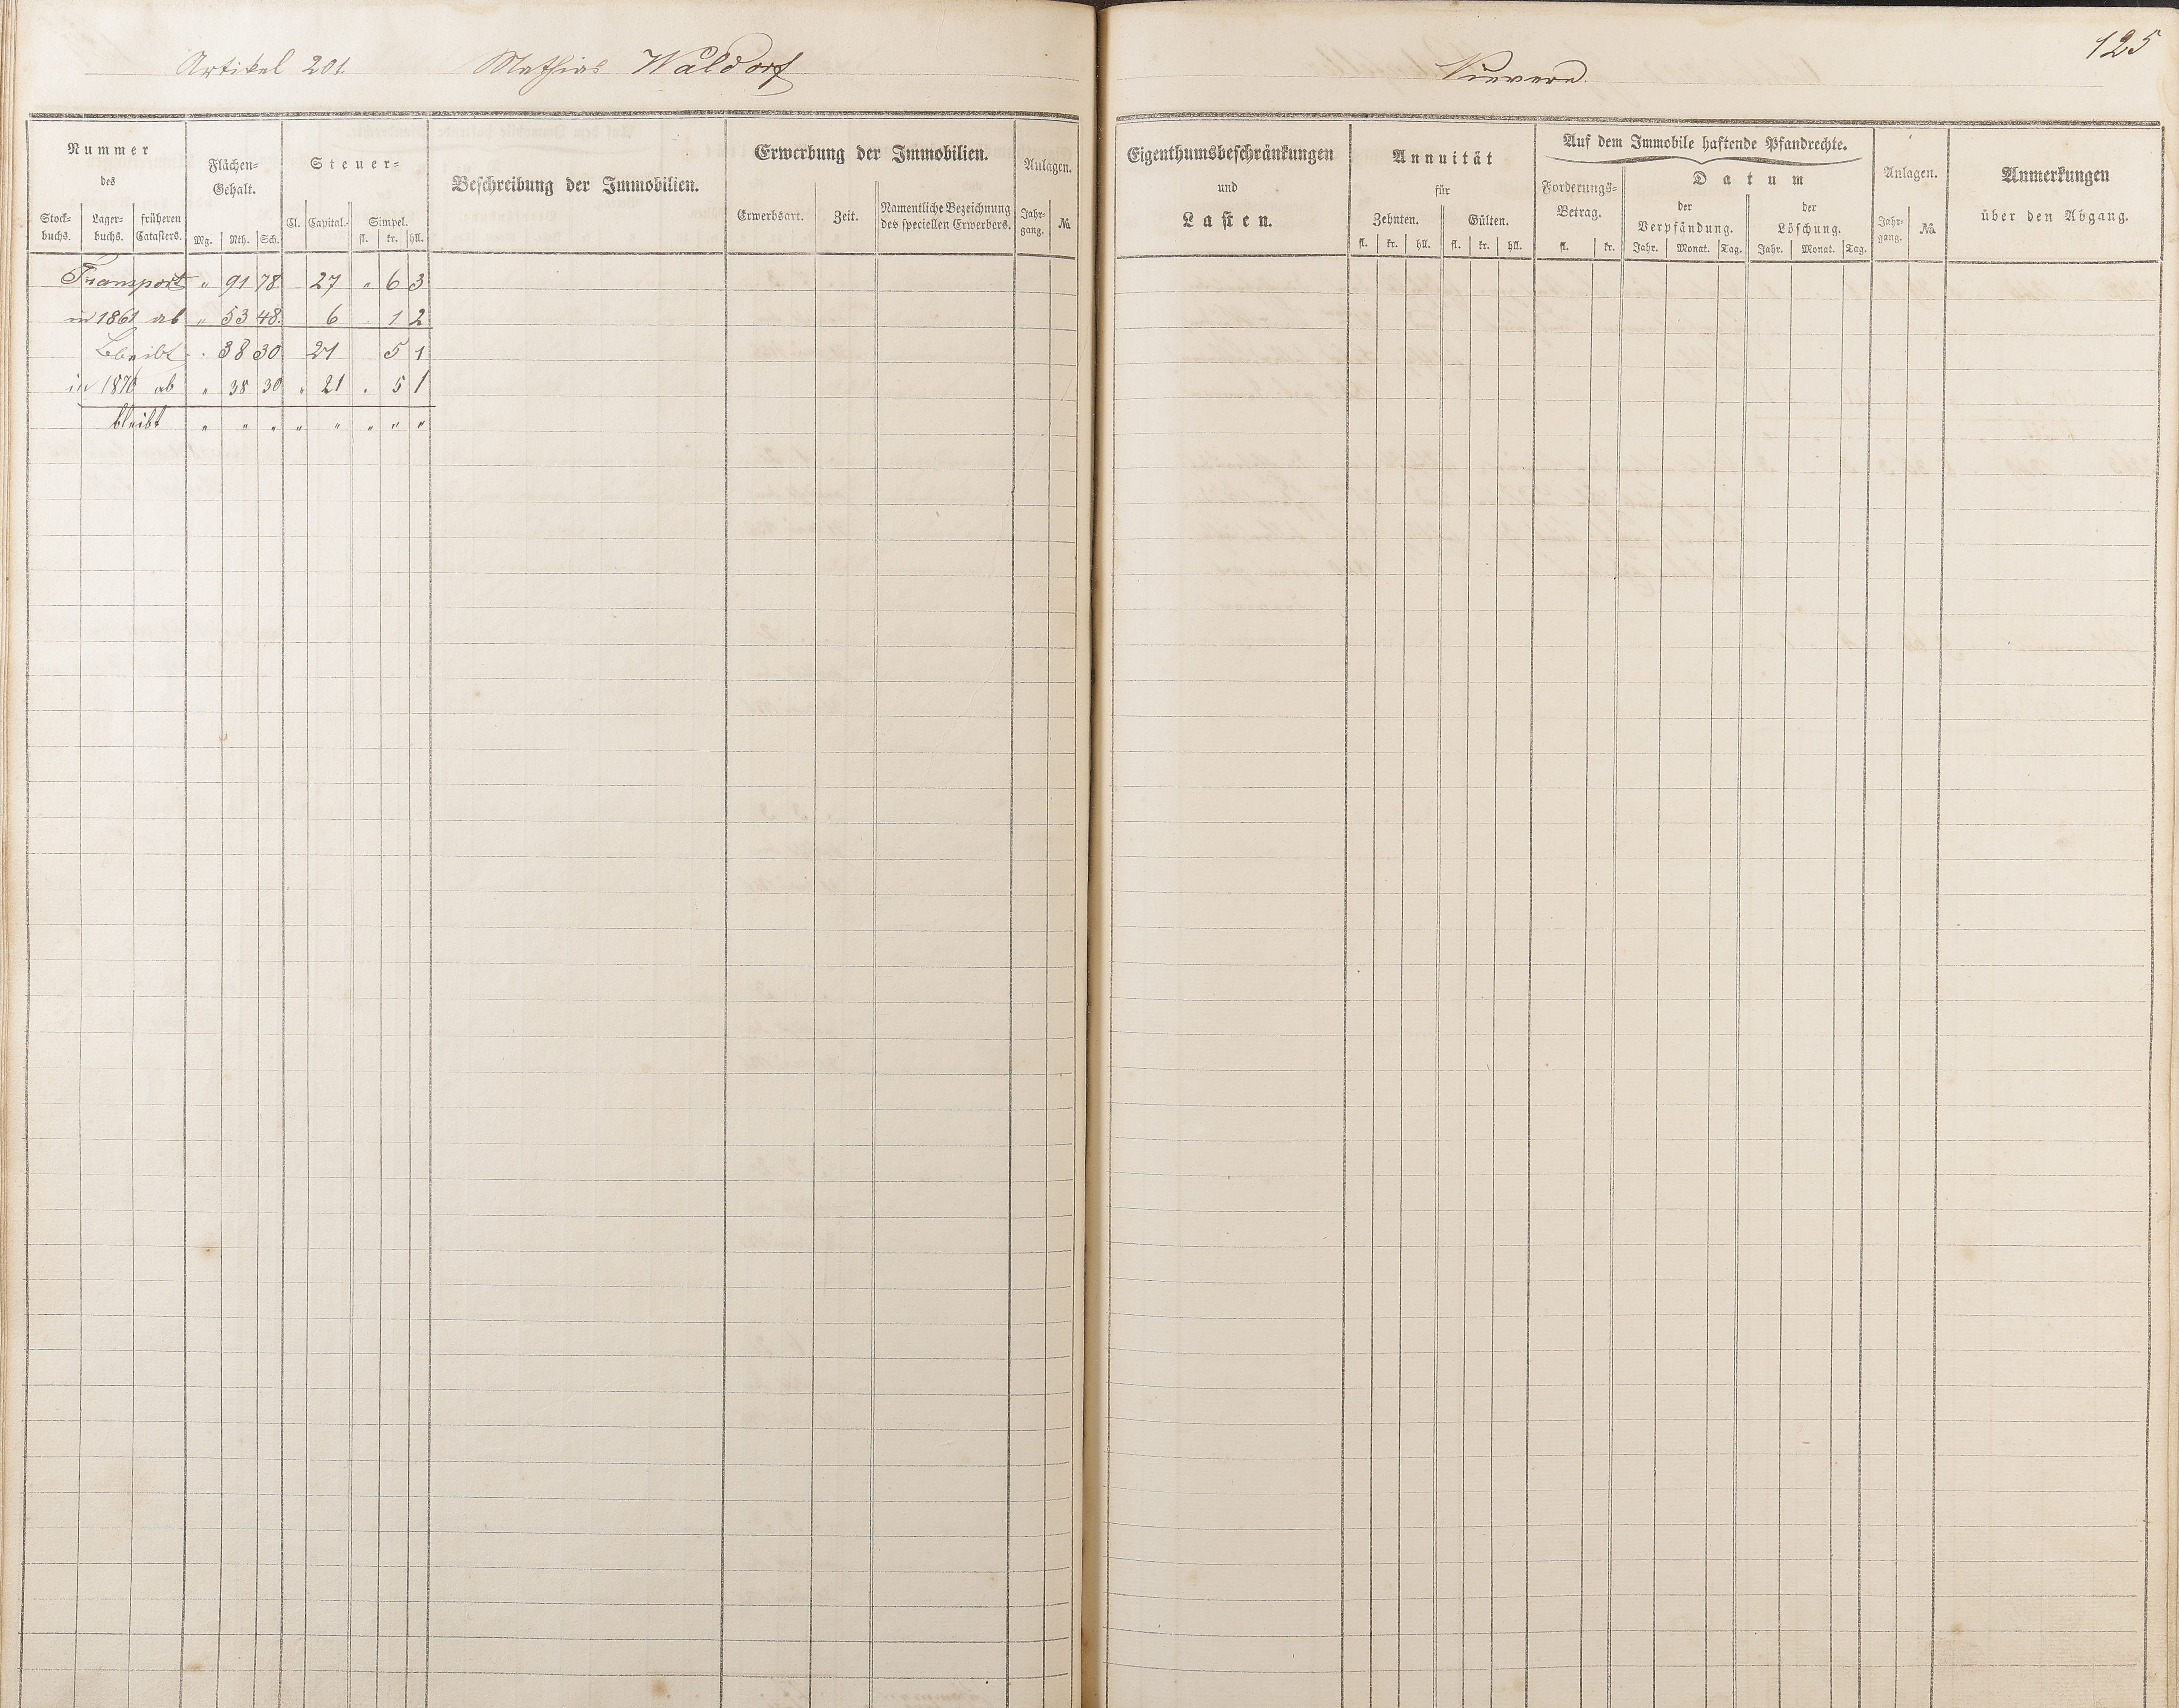 Artikel 201. Mathias Waldorf
Nummer
des
Stock-
buchs.
Lager-
buchs.
früheren
Catasters.
Flächen-
Gehalt.
Mg. Rth. Sch.
Steuer-
Cl. Capital. Simpel.
fl. kr. hll.
Beschreibung der Immobilien.
Erwerbung der Immobilien.
Erwerbsart. Zeit. Namentliche Bezeichnung
des speciellen Erwerbers.
Anlagen.
Jahr-
gang.
No.
Transport " 91 78 27 " 6 3
in 1861 ab " 53 48. 6 . 1 2
Bleibt . 38 30 21 5 1
in 1870 ab " 38 30 " 21 . 5 1
bleibt " " " " " " " "
125
Nievern.
Eigenthumsbeschränkungen
und
Lasten.
Annuität
für
Zehnten. Gülten.
fl. kr. hll. fl. kr. hll.
Auf dem Immobile haftende Pfandrechte.
Forderungs-
Betrag.
fl. kr.
Datum
der
Verpfändung.
Jahr. Monat. Tag.
der
Löschung.
Jahr. Monat. Tag.
Anlagen.
Jahr-
gang.
No.
Anmerkungen
über den Abgang.